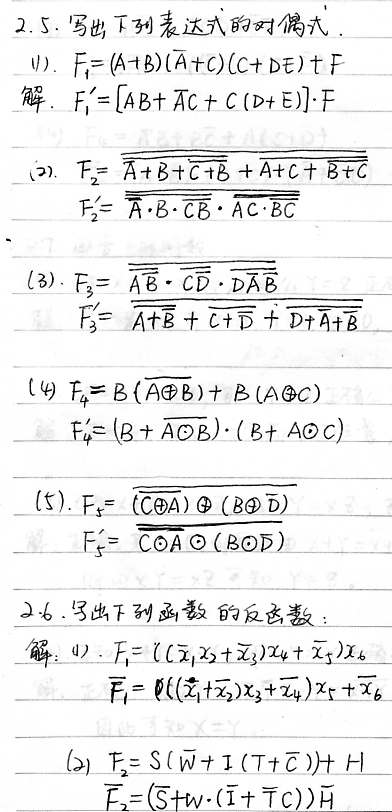 2.5. 写出下列表达式的对偶式.
(1). F₁=(A+B)(A̅+C)(C+DE)+F
解. F₁′=[AB+A̅C+C(D+E)]·F
(2). F₂ = \overline{\overline{\overline{A}+B+\overline{\overline{C}+B}}+\overline{A+C+\overline{B+C}}}
F₂′= \overline{\overline{\overline{A}·B·\overline{\overline{C}B}}·\overline{AC·\overline{BC}}}
(3). F₃ = \overline{\overline{A\overline{B}}·\overline{C\overline{D}}·\overline{D\overline{A}\overline{B}}}
F₃′= \overline{\overline{A+\overline{B}}+\overline{C+\overline{D}}+\overline{D+\overline{A}+\overline{B}}}
(4) F₄= B(\overline{A⊕B})+B(A⊕C)
F₄′=(B+\overline{A⊙B})·(B+A⊙C)
(5). F₅= \overline{(\overline{C⊕A})⊕(B⊕\overline{D})}
F₅′= \overline{\overline{C⊙A}⊙(B⊙\overline{D})}
2.6. 写出下列函数的反函数:
解: (1). F₁=((x̅₁x₂+x̅₃)x₄+x̅₅)x₆
F̅₁=(((x̅₁+x̅₂)x₃+x̅₄)x₅+x̅₆
(2) F₂=S(W̅+I(T+C̅))+H
F̅₂=(S̅+W·(I̅+T̅C))H̅